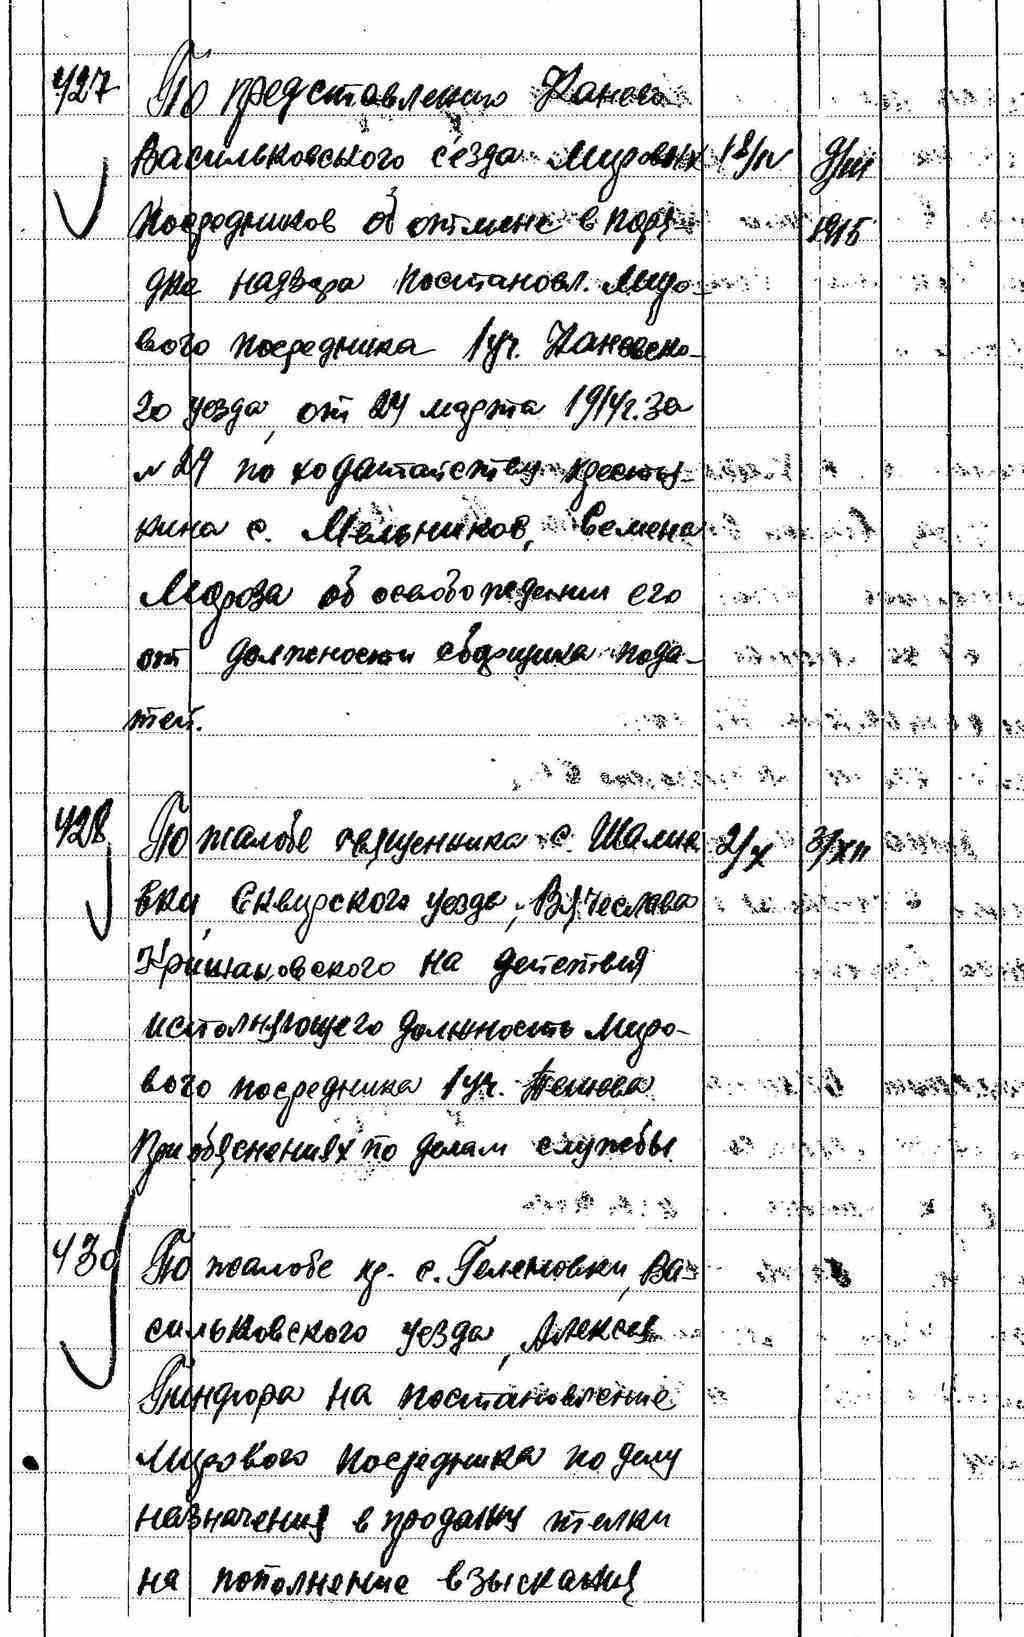 427 По представлению Канева
Васильковского с'езда Мировых 18/IV 9/III
Посредников об отмене в поря- 1915
дке надзора постановл. Миро-
вого посредника 1 уч. Каневско-
го уезда, от 24 марта 1914 г. за
№ 29 по ходатайству крестья-
нина с. Мельников, Семена
Мороза об освобождении его
от должности сборщика пода-
тей.
428 По жалобе священника с. Шалии- 2/X 3/XII
вки, Сквирского уезда, Вячеслава
Кришановского на действия
исполняющего должность Миро-
вого посредника 1 уч.
при об'яснениях по делам службы
430 По жалобе кр. с. Гелемовки, Ва-
сильковского уезда, Алексея
на постановление
Мирового Посредника по делу
назначения в продажу телки
на пополнение взыскания